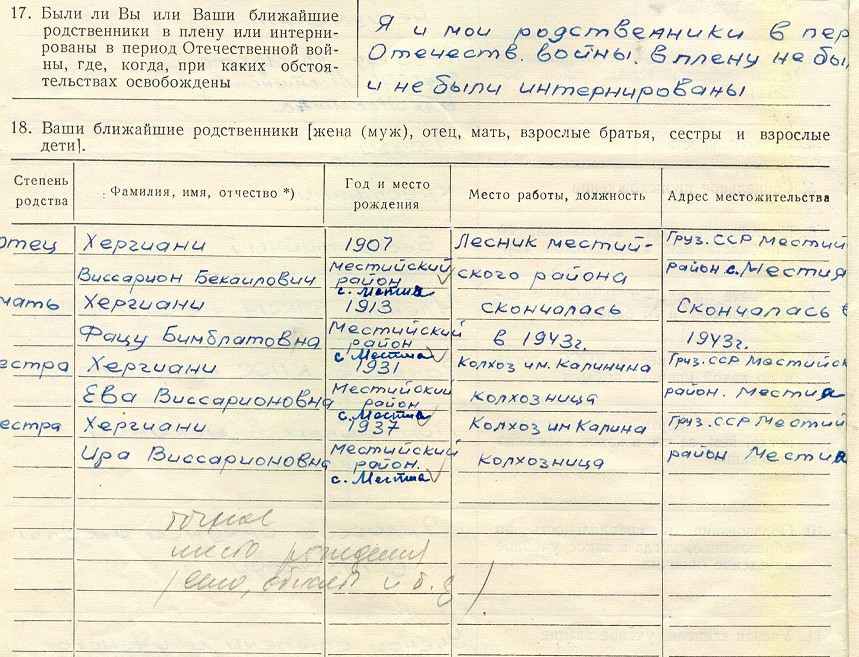 17. Были ли Вы или Ваши ближайшие
родственники в плену или интерни-
рованы в период Отечественной вой-
ны, где, когда, при каких обстоя-
тельствах освобождены
Я и мои родственники в пер
Отечеств. войны. в плену не бы
и не были интернированы
18. Ваши ближайшие родственники [жена (муж), отец, мать, взрослые братья, сестры и взрослые
дети].
Степень родства Фамилия, имя, отчество *) Год и место рождения Место работы, должность Адрес местожительства
отец Хергиани 1907 Лесник местий- Груз. ССР Местий
Виссарион Бекаилович Местийский район с. Местиа ского района район с. Местиа
мать Хергиани 1913 скончалась Скончалась в
Фацу Бимблатовна Местийский район с. Местиа в 1943г. 1943г.
естра Хергиани 1931 Колхоз им. Калинина Груз. ССР Местийск
Ева Виссарионовна Местийский район с. Местиа колхозница район. Местиа
естра Хергиани 1937 Колхоз им Калина Груз. ССР Местий
Ира Виссарионовна Местийский район. с. Местиа колхозница район Местиа
точное
место рождения
(село, и т. д.)